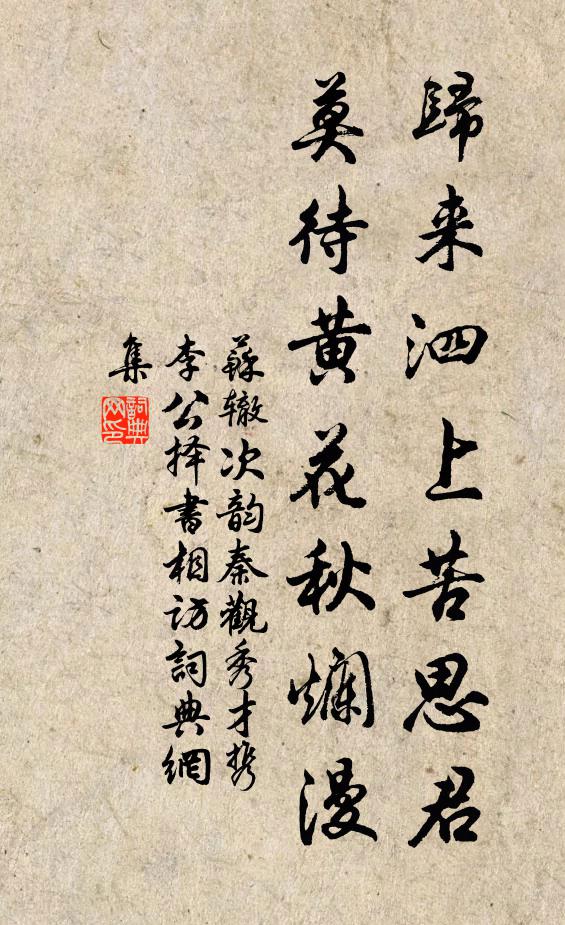 歸来泗上苦思君
莫待黄花秋爛漫
蘇辙次韵秦觀秀才携
李公择書相访詞典網
集
詞典
网印